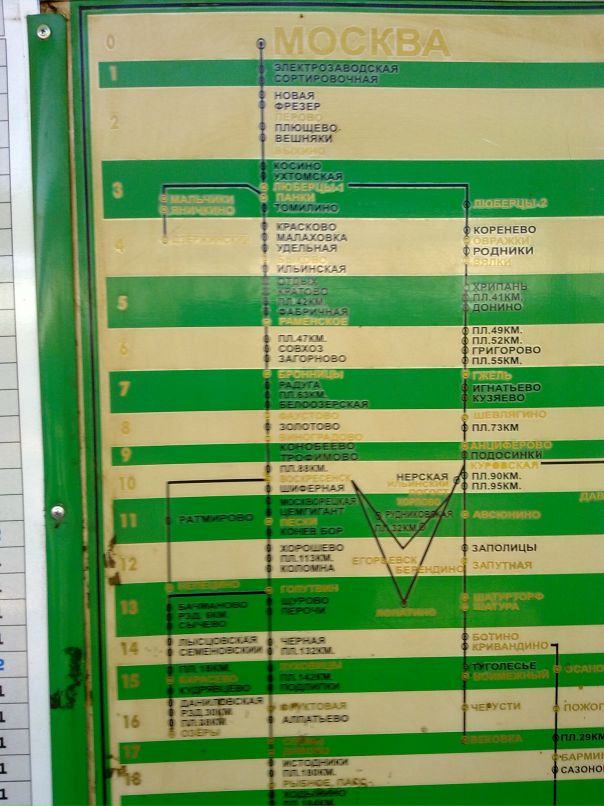 0
МОСКВА
1
ЭЛЕКТРОЗАВОДСКАЯ
СОРТИРОВОЧНАЯ
2
НОВАЯ
ФРЕЗЕР
ПЕРОВО
ПЛЮЩЕВО
ВЕШНЯКИ
ВЫХИНО
3
КОСИНО
УХТОМСКАЯ
ЛЮБЕРЦЫ-1
ПАНКИ
ТОМИЛИНО
МАЛЬЧИКИ
ЯНИЧКИНО
ДЗЕРЖИНСКИЙ
ЛЮБЕРЦЫ-2
4
КРАСКОВО
МАЛАХОВКА
УДЕЛЬНАЯ
БЫКОВО
ИЛЬИНСКАЯ
КОРЕНЕВО
ОВРАЖКИ
РОДНИКИ
ВЯЛКИ
5
ОТДЫХ
КРАТОВО
ПЛ.42КМ.
ФАБРИЧНАЯ
РАМЕНСКОЕ
ХРИПАНЬ
ПЛ.41КМ.
ДОНИНО
6
ПЛ.47КМ.
СОВХОЗ
ЗАГОРНОВО
ПЛ.49КМ.
ПЛ.52КМ.
ГРИГОРОВО
ПЛ.55КМ.
7
БРОННИЦЫ
РАДУГА
ПЛ.63КМ.
БЕЛООЗЕРСКАЯ
ГЖЕЛЬ
ИГНАТЬЕВО
КУЗЯЕВО
8
ФАУСТОВО
ЗОЛОТОВО
ВИНОГРАДОВО
ШЕВЛЯГИНО
ПЛ.73КМ
9
КОНОБЕЕВО
ТРОФИМОВО
АНЦИФЕРОВО
ПОДОСИНКИ
10
ПЛ.88КМ.
ВОСКРЕСЕНСК
ШИФЕРНАЯ
КУРОВСКАЯ
ПЛ.90КМ.
ПЛ.95КМ.
НЕРСКАЯ
ИЛЬИНСКИЙ
ПОГОСТ
ХОРЛОВО
ДАВ
11
МОСКВОРЕЦКАЯ
ЦЕМГИГАНТ
ПЕСКИ
КОНЕВ.БОР
РАТМИРОВО
РУДНИКОВСКАЯ
ПЛ.32КМ.
АВСЮНИНО
12
ХОРОШЕВО
ПЛ.113КМ.
КОЛОМНА
ЕГОРЬЕВСК
БЕРЕНДИНО
ЗАПОЛИЦЫ
ЗАПУТНАЯ
13
ГОЛУТВИН
ЩУРОВО
ПЕРОЧИ
БАЧМАНОВО
РЗД. 6КМ.
СЫЧЕВО
ЛОПАТИНО
ШАТУРТОРФ
ШАТУРА
14
ЛЫСЦОВСКАЯ
СЕМЕНОВСКИЙ
ЧЕРНАЯ
ПЛ.132КМ.
БОТИНО
КРИВАНДИНО
15
ПЛ.18КМ.
КАРАСЕВО
КУДРЯВЦЕВО
ЛУХОВИЦЫ
ПЛ.142КМ.
ПОДЛИПКИ
ТУГОЛЕСЬЕ
ВОЙМЕЖНЫЙ
ОСАНО
16
ДАНИЛОВСКАЯ
РЗД.30КМ.
ПЛ.38КМ.
ОЗЕРЫ
ФРУКТОВАЯ
АЛПАТЬЕВО
ЧЕРУСТИ
ПОЖОГ
17
ДИВОВО
ВЕКОВКА
ПЛ.29КМ
18
ИСТОДНИКИ
ПЛ.180КМ.
РЫБНОЕ, ПАСС.
БАРМИН
САЗОНО